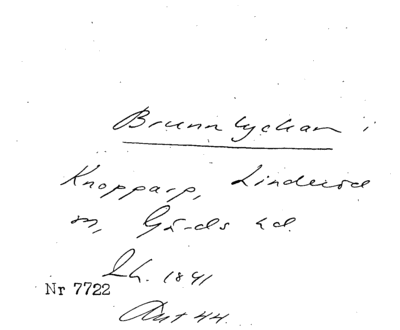 Brunnlyckan i
Knopparp, Linderöd
sn, Gärds hd.
Lh. 1841
Nr 7722
Akt 44.